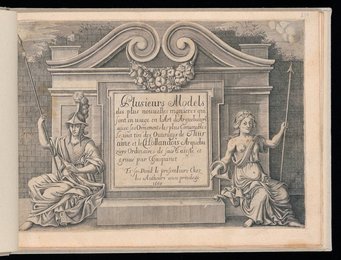 Plusieurs Models
des plus nouuelles manieres qui
sont en usage en l'Art de Arquebuzerie
auec ses Ornements les plus Conuenables
Le tout tiré des Ouurages de Thur
aine et le Hollandois Arquebu
ziers Ordinaires de sa Majesté et
graue par C Jacquinet
Et se Vend le present liure Chez
les Autheurs auec priuilege
1660